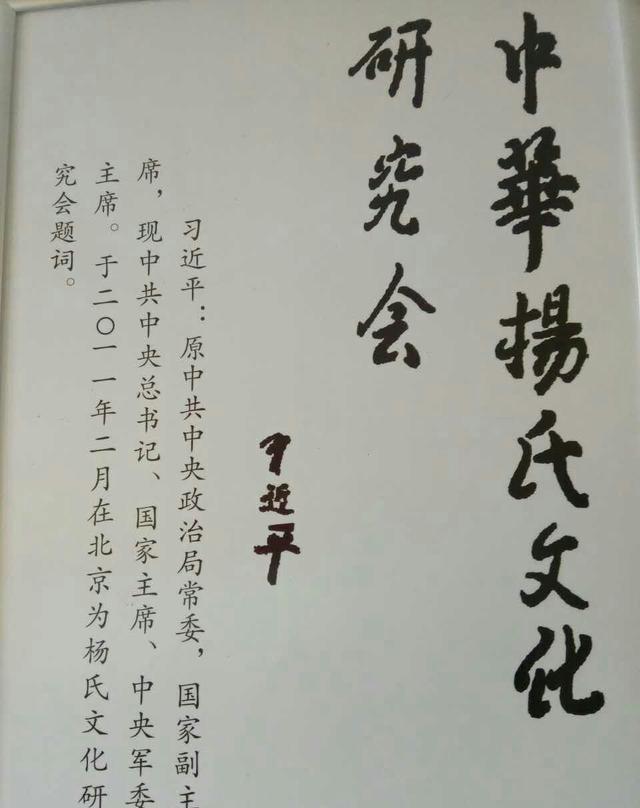 中華楊氏文化
研究会
习近平
习近平：原中共中央政治局常委，国家副主
席，现中共中央总书记、国家主席、中央军委
主席。于二〇一一年二月在北京为杨氏文化研
究会题词。